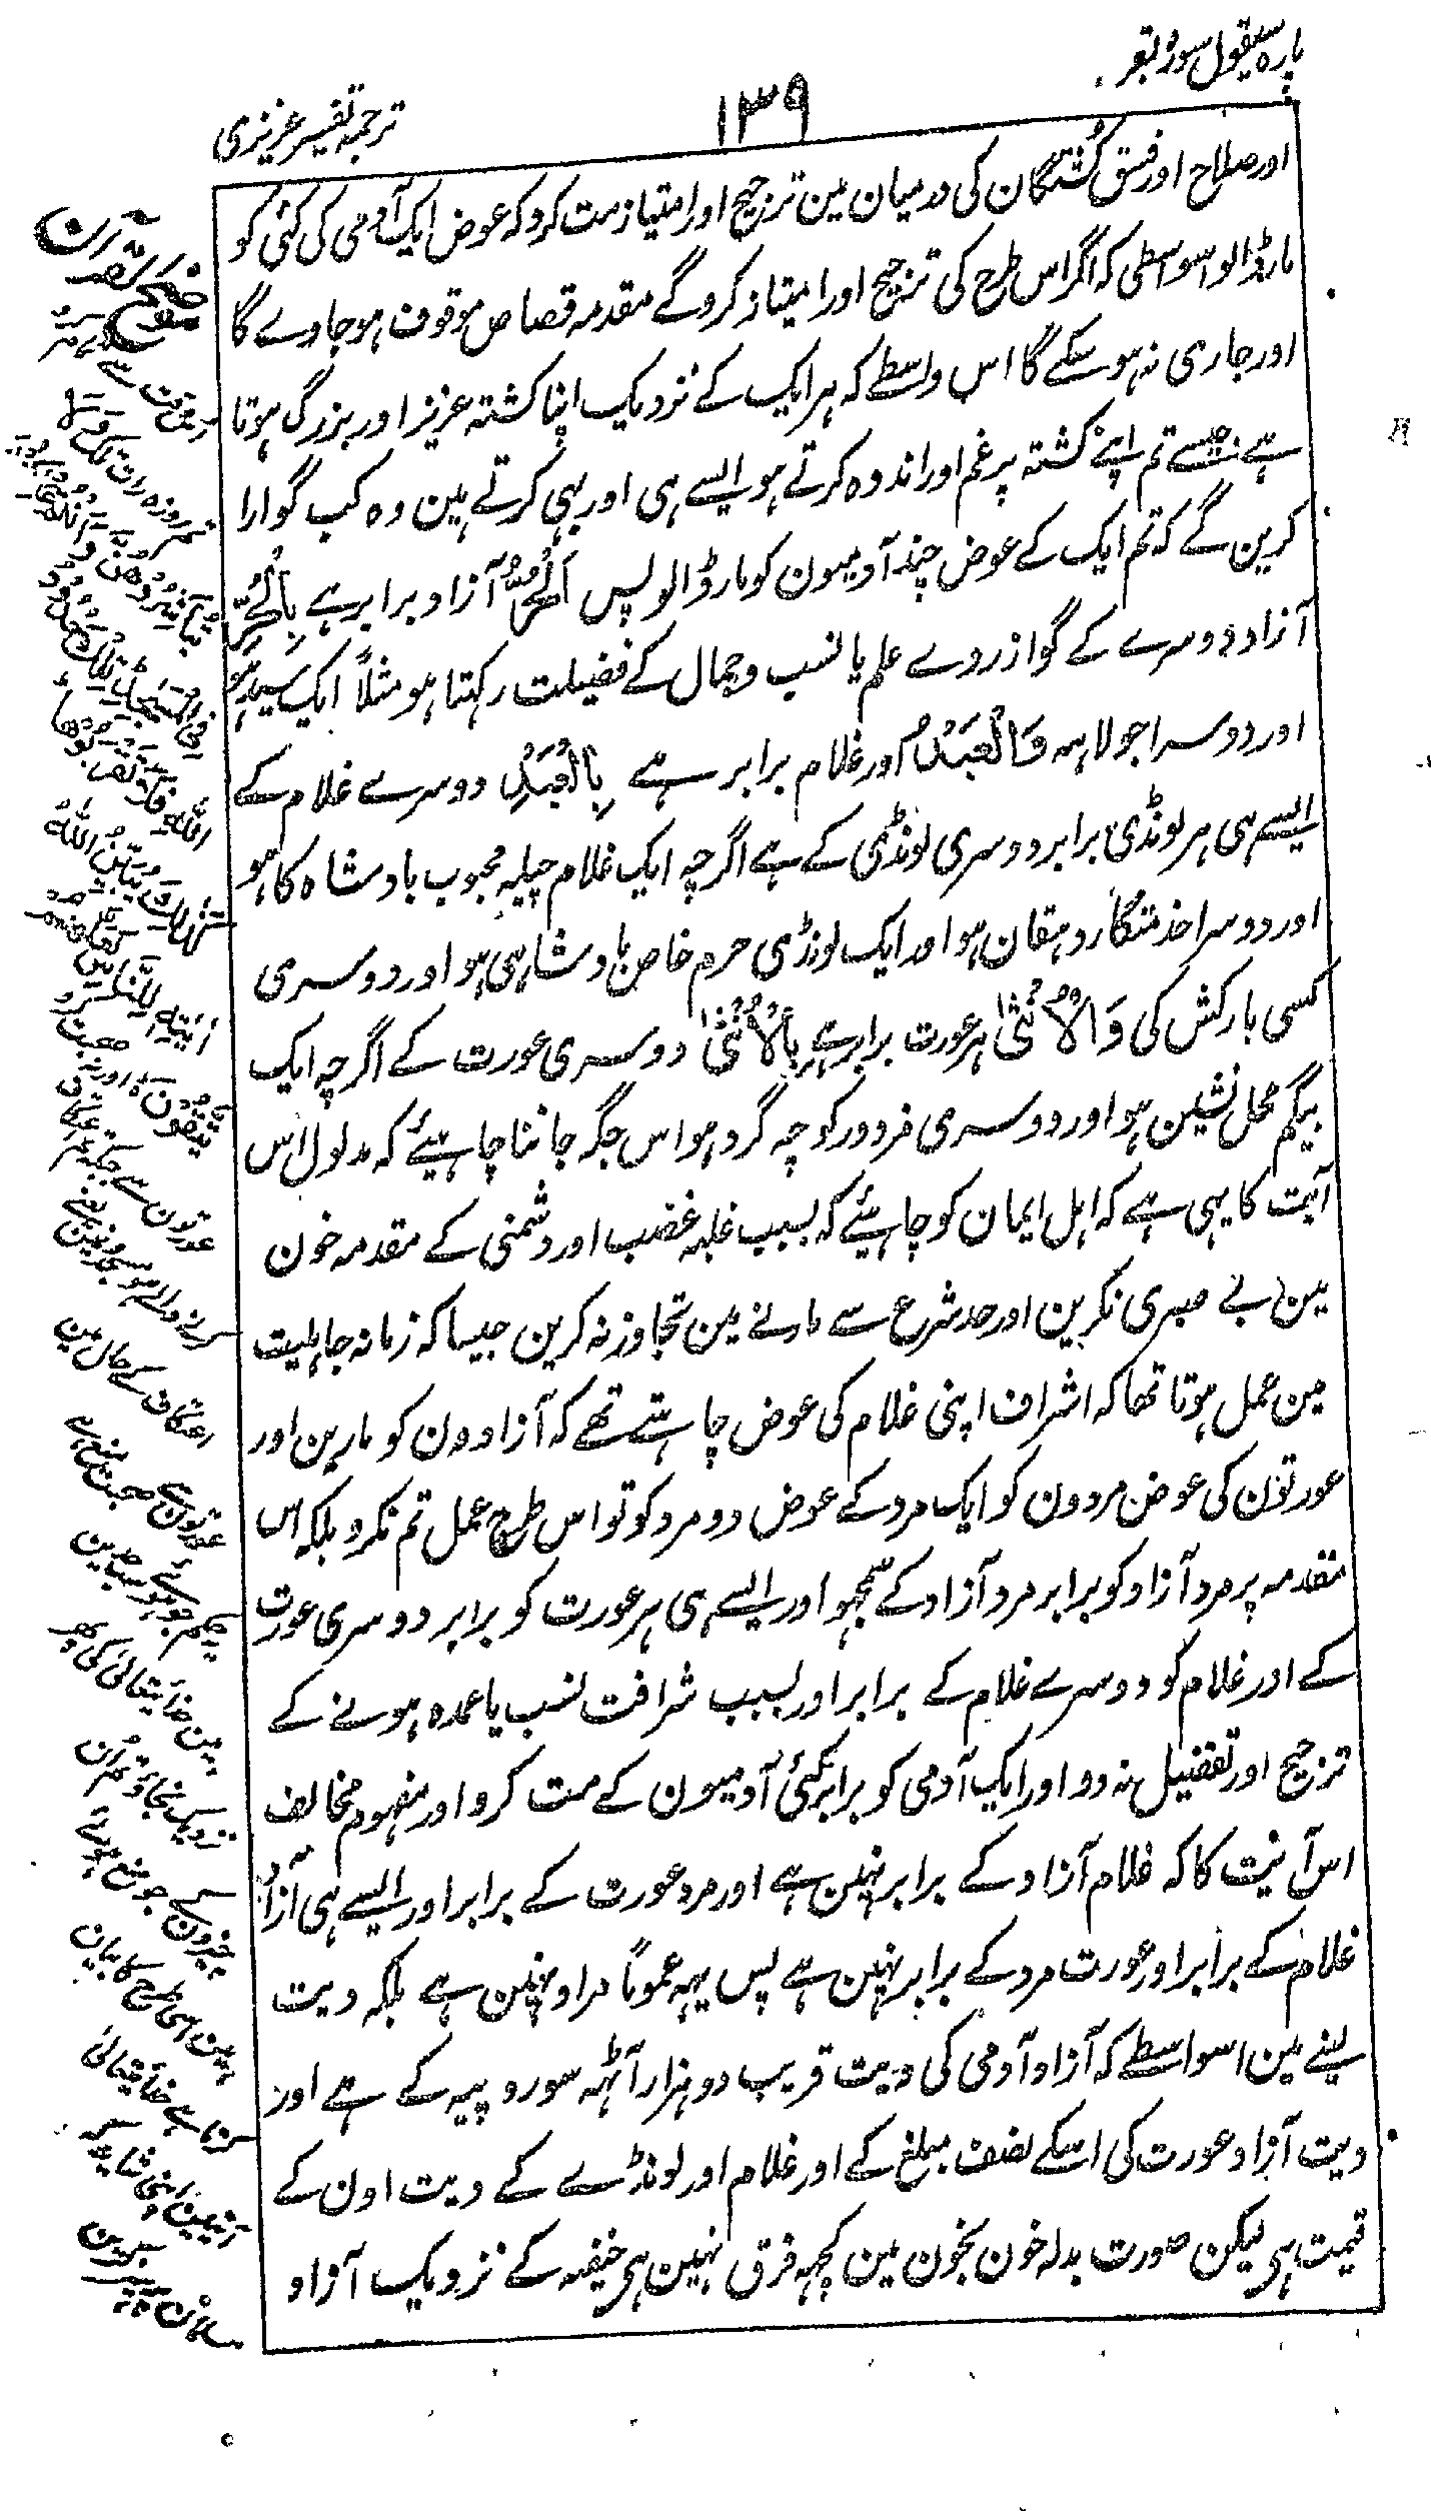 پارہ سیقول سورہ بقر
۱۳۹
ترجمہ تفسیر عزیزی
اور صلاح اور فسق کُشتگان کی درمیان مین ترجیح اور امتیاز مت کرو کہ عوض ایک آدمی کی کئی کو
مارڈالو اسواسطی کہ اگر اس طرح کی ترجیح اور امتیاز کروگے مقدمہ قصاص موقوف ہوجاوے گا
اور جاری نہ ہوسکے گا اس واسطے کہ ہر ایک کے نزدیک اپنا کشتہ عزیز اور بزرگ ہوتا
ہے جیسے تم اپنے کشتہ پر غم اور اندوہ کرتے ہو ایسے ہی اور بہی کرتے ہین وہ کب گوارا
کرین گے کہ تم ایک کے عوض چند آدمیون کو مارڈالو پس اَلْحُرُّ آزاد برابر ہے بِالْحُرِّ
آزاد دوسرے کے گو ازروے علم یا نسب وجمال کے فضیلت رکہتا ہو مثلاً ایک سید ہو
اور دوسرا جولاہہ وَالْعَبْدُ اور غلام برابر ہے بِالْعَبْدِ دوسرے غلام کے
ایسے ہی ہر لونڈی برابر دوسری لونڈی کے ہے اگرچہ ایک غلام چیلہ محبوب بادشاہ کا ہو
اور دوسرا خذمتگار دہقان ہو اور ایک لونڈی حرم خاص بادشاہی ہو اور دوسری
کسی بارکش کی وَالْاُنْثٰی ہر عورت برابر ہے بِالْاُنْثٰی دوسری عورت کے اگرچہ ایک
بیگم محل نشین ہو اور دوسری مزدور کوچہ گرد ہو اس جگہ جاننا چاہیئے کہ مدلول اس
آیت کا یہی ہے کہ اہل ایمان کو چاہیئے کہ بسبب غلبہ غضب اور دشمنی کے مقدمہ خون
مین بے صبری نکرین اور حد شرع سے مارنے مین تجاوز نہ کرین جیسا کہ زمانہ جاہلیت
مین عمل ہوتا تھا کہ اشراف اپنی غلام کی عوض چاہتے تھے کہ آزادون کو مارین اور
عورتون کی عوض مردون کو ایک مرد کے عوض دو مرد کو تو اس طرح عمل تم نکرو بلکہ اس
مقدمہ پر مرد آزاد کو برابر مرد آزاد کے سمجہو اور ایسے ہی ہر عورت کو برابر دوسری عورت
کے اور غلام کو دوسرے غلام کے برابر اور بسبب شرافت نسب یا عمدہ ہونے کے
ترجیح اور تفضیل نہ دو اور ایک آدمی کو برابر کئی آدمیون کے مت کرو اور مفہوم مخالف
اس آیت کا کہ غلام آزاد کے برابر نہین ہے اور مرد عورت کے برابر اور ایسے ہی آزاد
غلام کے برابر اور عورت مرد کے برابر نہین ہے پس یہہ عموماً مراد نہین ہے بلکہ دیت
لینے مین اسواسطے کہ آزاد آدمی کی دیت قریب دو ہزار آٹہہ سو روپیہ کے ہے اور
دیت آزاد عورت کی اسکے نصف مبلغ کے اور غلام اور لونڈے کے دیت اون کے
قیمت ہی لیکن صورت بدلہ خون بخون مین کچہہ فرق نہین ہی حنیفہ کے نزدیک آزاد
تم روزہ رات تک ولا
تُبَاشِرُوْهُنَّ وَاَنْتُمْ عَاكِفُوْنَ
فِی الْمَسٰجِدِ تِلْكَ حُدُوْدُ
اللّٰهِ فَلَا تَقْرَبُوْهَا
كَذٰلِكَ يُبَيِّنُ اللّٰهُ
اٰيٰتِهٖ لِلنَّاسِ لَعَلَّهُمْ
يَتَّقُوْنَ اور نہ صحبت کرو
عورتون سے جبکہ تم اعتکاف
کرنے والے ہو مسجدونمین یعنے
اعتکاف کے حال مین
عورتون سے صحبت منع ہے
نزدیک نجاؤ تم اُن
چیزون کے جو منع ہوے
ہین اسی طرح کا بیان
کرتا ہے خدایتعالیٰ